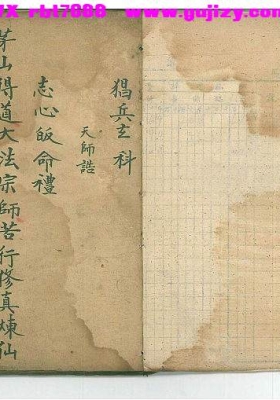 rbt7888 www.gujizy.com
猖兵玄科
天師誥
志心皈命禮
茅山得道大法宗師苦行修真煉仙